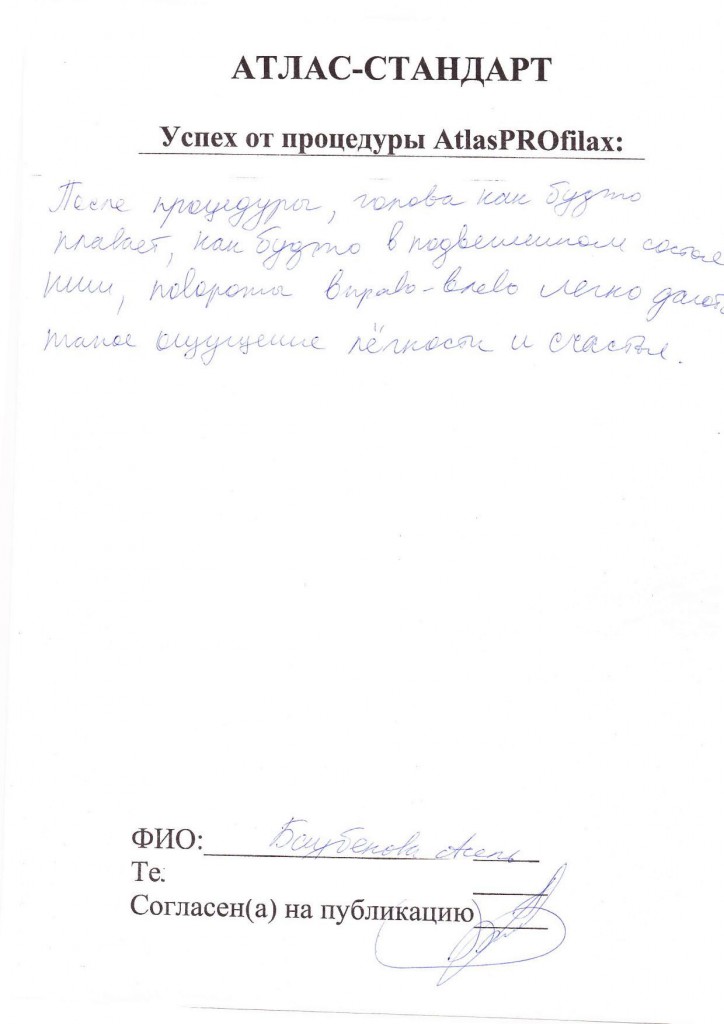 АТЛАС-СТАНДАРТ
Успех от процедуры AtlasPROfilax:
После процедуры, голова как будто
плавает, как будто в подвешенном состоя
нии, повороты вправо-влево легко дают
такое ощущение лёгкости и счастья.
ФИО: Баубекова Асель
Те
Согласен(а) на публикацию